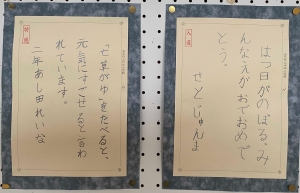 入選
はつ日がのぼる、み
んなえがおでおめで
とう。
せと じゅんよ
特選
七草がゆをたべると、
元気にすごせると言わ
れています。
二年 あし田 れいな